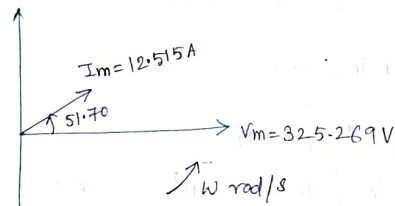 Im=12.515A
51.70
Vm=325.269V
W rad/s